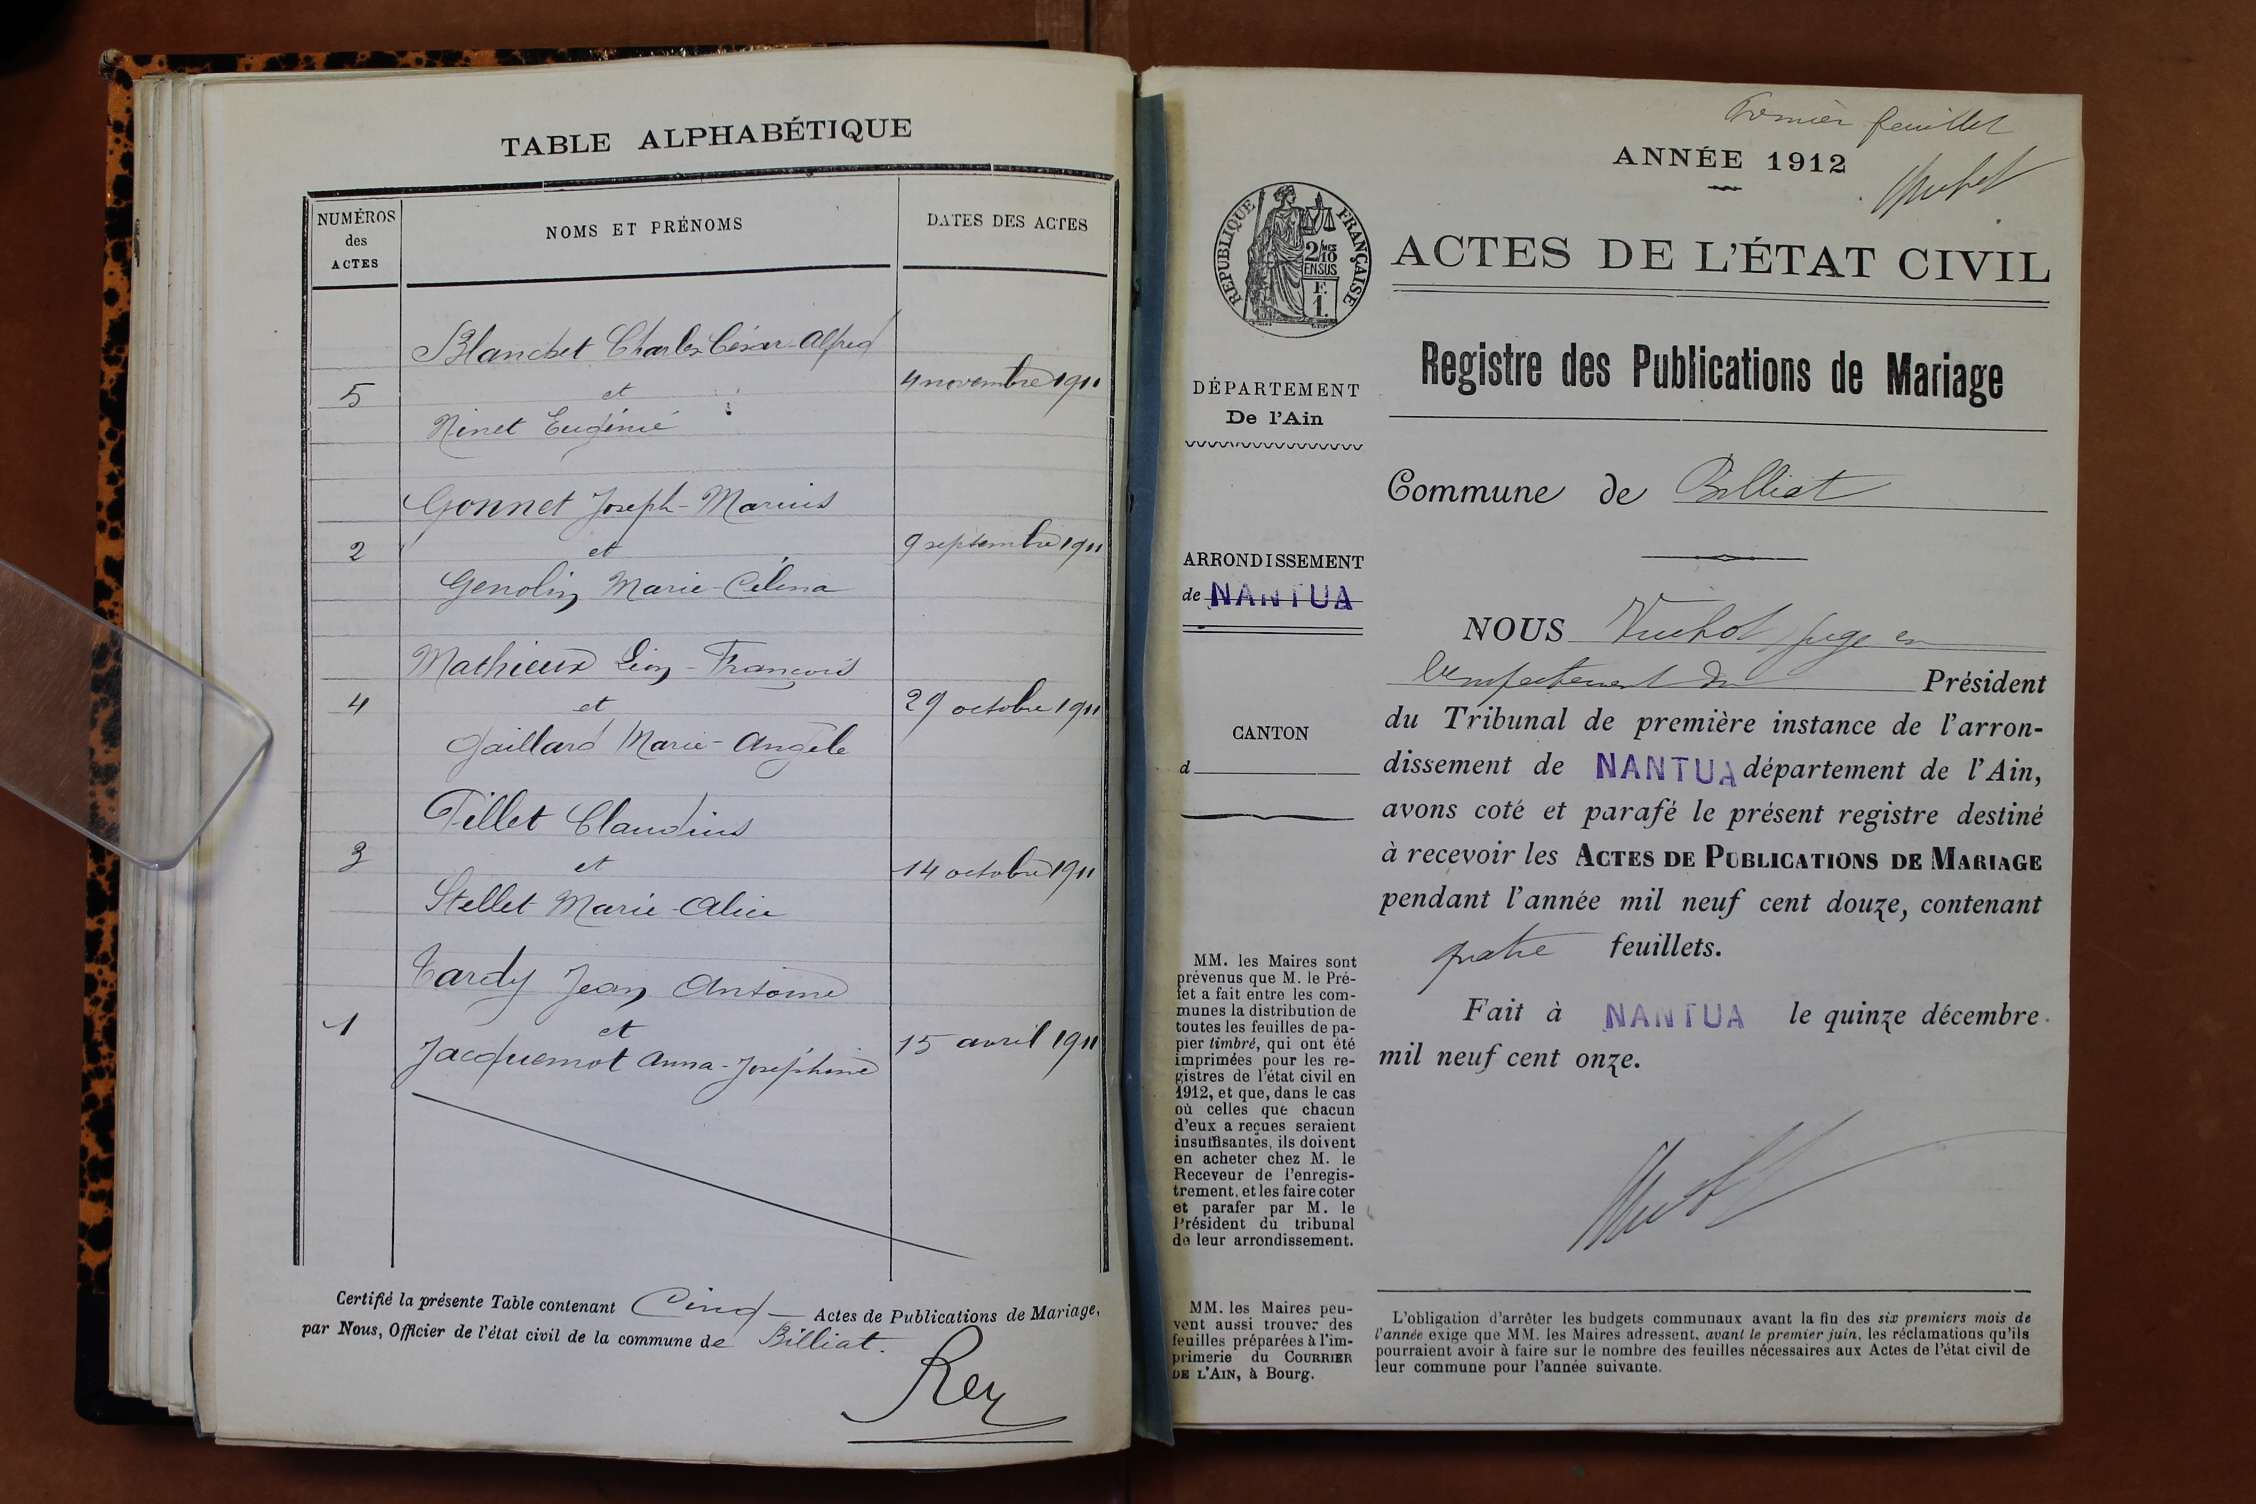 TABLE ALPHABÉTIQUE
NUMÉROS
des
ACTES
NOMS ET PRÉNOMS
DATES DES ACTES
Blanchet Charles César-Alfred
5
et
4 novembre 1911
Ninet Eugénie
Gonnet Joseph-Marius
2
et
9 septembre 1911
Genolin Marie-Célina
Mathieux Léon-François
4
et
29 octobre 1911
Gaillard Marie-Angèle
Tillet Claudius
3
et
14 octobre 1911
Stellet Marie-Alice
Tardy Jean Antoine
1
et
15 avril 1911
Jacquemot Anna-Joséphine
Certifié la présente Table contenant Cinq Actes de Publications de Mariage,
par Nous, Officier de l'état civil de la commune de Billiat.
Rey
Premier feuillet
ANNÉE 1912
RÉPUBLIQUE FRANÇAISE
2/10
EN SUS
F.
1.
ACTES DE L'ÉTAT CIVIL
Registre des Publications de Mariage
DÉPARTEMENT
De l'Ain
Commune de Billiat
ARRONDISSEMENT
de NANTUA
CANTON
d
NOUS juge en
du Président
du Tribunal de première instance de l'arron-
dissement de NANTUA département de l'Ain,
avons coté et parafé le présent registre destiné
à recevoir les ACTES DE PUBLICATIONS DE MARIAGE
pendant l'année mil neuf cent douze, contenant
quatre feuillets.
Fait à NANTUA le quinze décembre
mil neuf cent onze.
MM. les Maires sont
prévenus que M. le Pré-
fet a fait entre les com-
munes la distribution de
toutes les feuilles de pa-
pier timbré, qui ont été
imprimées pour les re-
gistres de l'état civil en
1912, et que, dans le cas
où celles que chacun
d'eux a reçues seraient
insuffisantes, ils doivent
en acheter chez M. le
Receveur de l'enregis-
trement, et les faire coter
et parafer par M. le
Président du tribunal
de leur arrondissement.
MM. les Maires peu-
vent aussi trouver des
feuilles préparées à l'im-
primerie du COURRIER
DE L'AIN, à Bourg.
L'obligation d'arrêter les budgets communaux avant la fin des six premiers mois de
l'année exige que MM. les Maires adressent, avant le premier juin, les réclamations qu'ils
pourraient avoir à faire sur le nombre des feuilles nécessaires aux Actes de l'état civil de
leur commune pour l'année suivante.